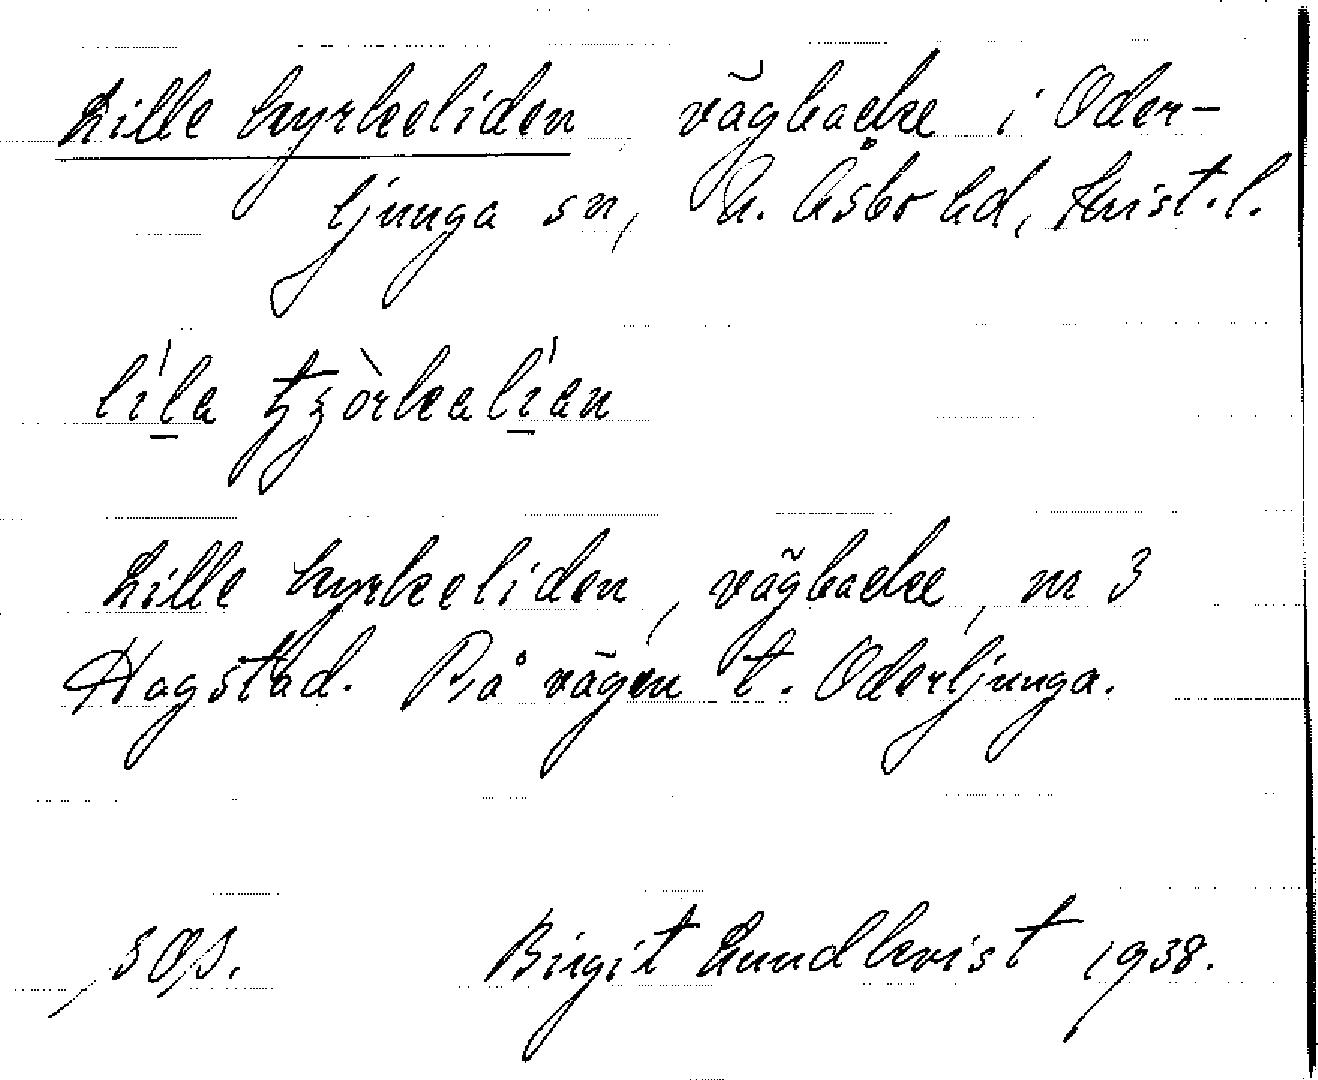 Lille kyrkeliden vägbacke i Oder-
ljunga sn, N. Åsbo hd, Krist.l.
lı́la tʒòrkalı́an
Lille kyrkeliden, vägbacke, nr 3
Hagstad. På vägen t. Oderljunga.
Birgit Lundkvist 1938.